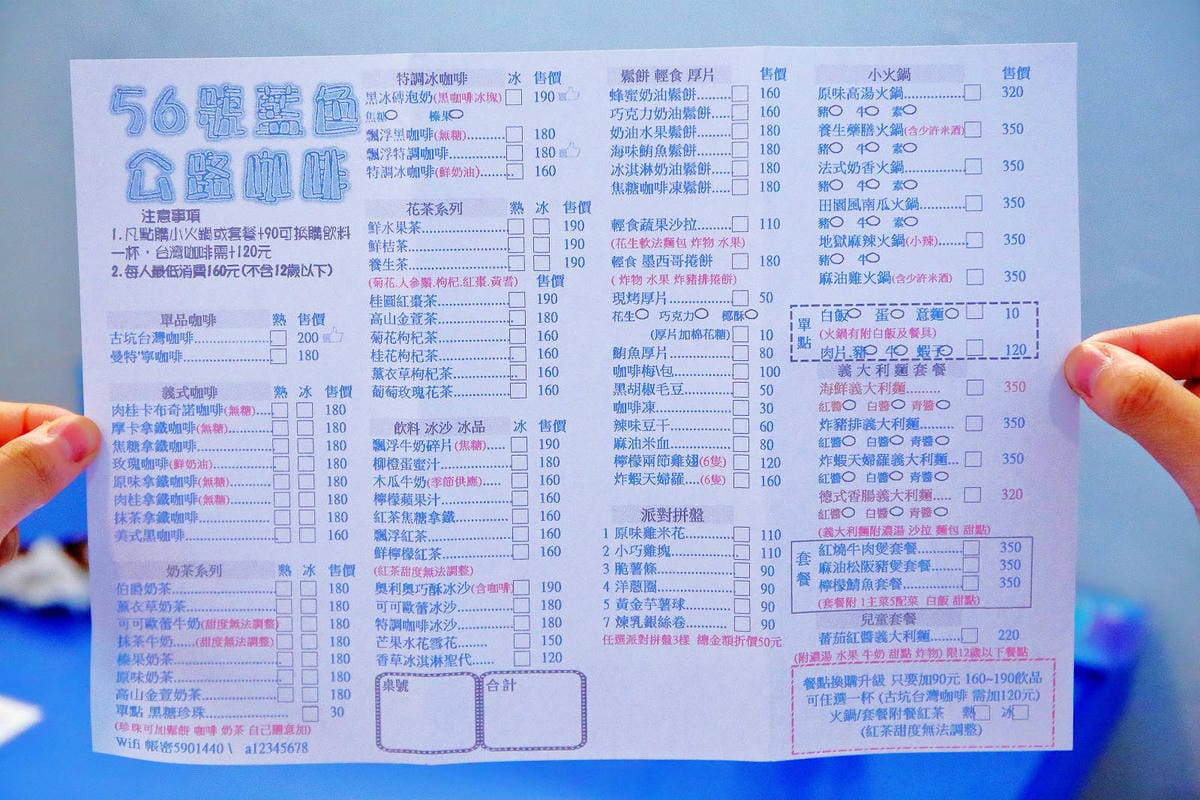 56號藍色
公路咖啡
注意事項
1.凡點購小火鍋或套餐+90可換購飲料
一杯，台灣咖啡需+120元
2.每人最低消費160元(不含12歲以下)
單品咖啡 熱 售價
古坑台灣咖啡 200
曼特寧咖啡 180
義式咖啡 熱 冰 售價
肉桂卡布奇諾咖啡(無糖) 180
摩卡拿鐵咖啡(無糖) 180
焦糖拿鐵咖啡 180
玫瑰咖啡(鮮奶油) 180
原味拿鐵咖啡(無糖) 180
肉桂拿鐵咖啡(無糖) 180
抹茶拿鐵咖啡 180
美式黑咖啡 160
奶茶系列 熱 冰 售價
伯爵奶茶 180
薰衣草奶茶 180
可可歐蕾牛奶(甜度無法調整) 180
抹茶牛奶(甜度無法調整) 180
榛果奶茶 180
原味奶茶 180
高山金萱奶茶 180
單點 黑糖珍珠 30
(珍珠可加鬆餅 咖啡 奶茶 自己隨意加)
Wifi 帳密5901440 \ a12345678
特調冰咖啡 冰 售價
黑冰磚泡奶(黑咖啡冰塊) 190
焦糖 榛果
飄浮黑咖啡(無糖) 180
飄浮特調咖啡 180
特調冰咖啡(鮮奶油) 160
花茶系列 熱 冰 售價
鮮水果茶 190
鮮桔茶 190
養生茶 190
(菊花.人參鬚.枸杞.紅棗.黃耆) 售價
桂圓紅棗茶 190
高山金萱茶 180
菊花枸杞茶 160
桂花枸杞茶 160
薰衣草枸杞茶 160
葡萄玫瑰花茶 160
飲料 冰沙 冰品 冰 售價
飄浮牛奶碎片(焦糖) 190
柳橙蛋蜜汁 180
木瓜牛奶(季節供應) 160
檸檬蘋果汁 160
紅茶焦糖拿鐵 160
飄浮紅茶 160
鮮檸檬紅茶 160
(紅茶甜度無法調整)
奧利奧巧酥冰沙(含咖啡) 190
可可歐蕾冰沙 180
特調咖啡冰沙 180
芒果水花雪花 150
香草冰淇淋聖代 120
桌號 合計
鬆餅 輕食 厚片 售價
蜂蜜奶油鬆餅 160
巧克力奶油鬆餅 160
奶油水果鬆餅 180
海味鮪魚鬆餅 180
冰淇淋奶油鬆餅 180
焦糖咖啡凍鬆餅 180
輕食蔬果沙拉 110
(花生軟法麵包 炸物 水果)
輕食 墨西哥捲餅 180
( 炸物 水果 炸豬排捲餅)
現烤厚片 50
花生 巧克力 椰酥
(厚片加棉花糖) 10
鮪魚厚片 80
咖啡梅\包 100
黑胡椒毛豆 50
咖啡凍 30
辣味豆干 60
麻油米血 80
檸檬兩節雞翅(6隻) 120
炸蝦天婦羅(6隻) 160
派對拼盤
1 原味雞米花 110
2 小巧雞塊 110
3 脆薯條 90
4 洋蔥圈 90
5 黃金芋薯球 90
7 煉乳銀絲卷 90
任選派對拼盤3樣 總金額折價50元
小火鍋 售價
原味高湯火鍋 320
豬 牛 素
養生藥膳火鍋(含少許米酒) 350
豬 牛 素
法式奶香火鍋 350
豬 牛 素
田園風南瓜火鍋 350
豬 牛 素
地獄麻辣火鍋(小辣) 350
豬 牛
麻油雞火鍋(含少許米酒) 350
單點
白飯 蛋 意麵 10
(火鍋有附白飯及餐具)
肉片.豬 牛 蝦子 120
義大利麵套餐
海鮮義大利麵 350
紅醬 白醬 青醬
炸豬排義大利麵 350
紅醬 白醬 青醬
炸蝦天婦羅義大利麵 350
紅醬 白醬 青醬
德式香腸義大利麵 320
紅醬 白醬 青醬
(義大利麵附濃湯 沙拉 麵包 甜點)
套餐
紅燒牛肉煲套餐 350
麻油松阪豬煲套餐 350
檸檬鯖魚套餐 350
(套餐附 1主菜5配菜 白飯 甜點)
兒童套餐
蕃茄紅醬義大利麵 220
(附濃湯 水果 牛奶 甜點 炸物) 限12歲以下餐點
餐點換購升級 只要加90元 160~190飲品
可任選一杯 (古坑台灣咖啡 需加120元)
火鍋/套餐附餐紅茶 熱 冰
(紅茶甜度無法調整)